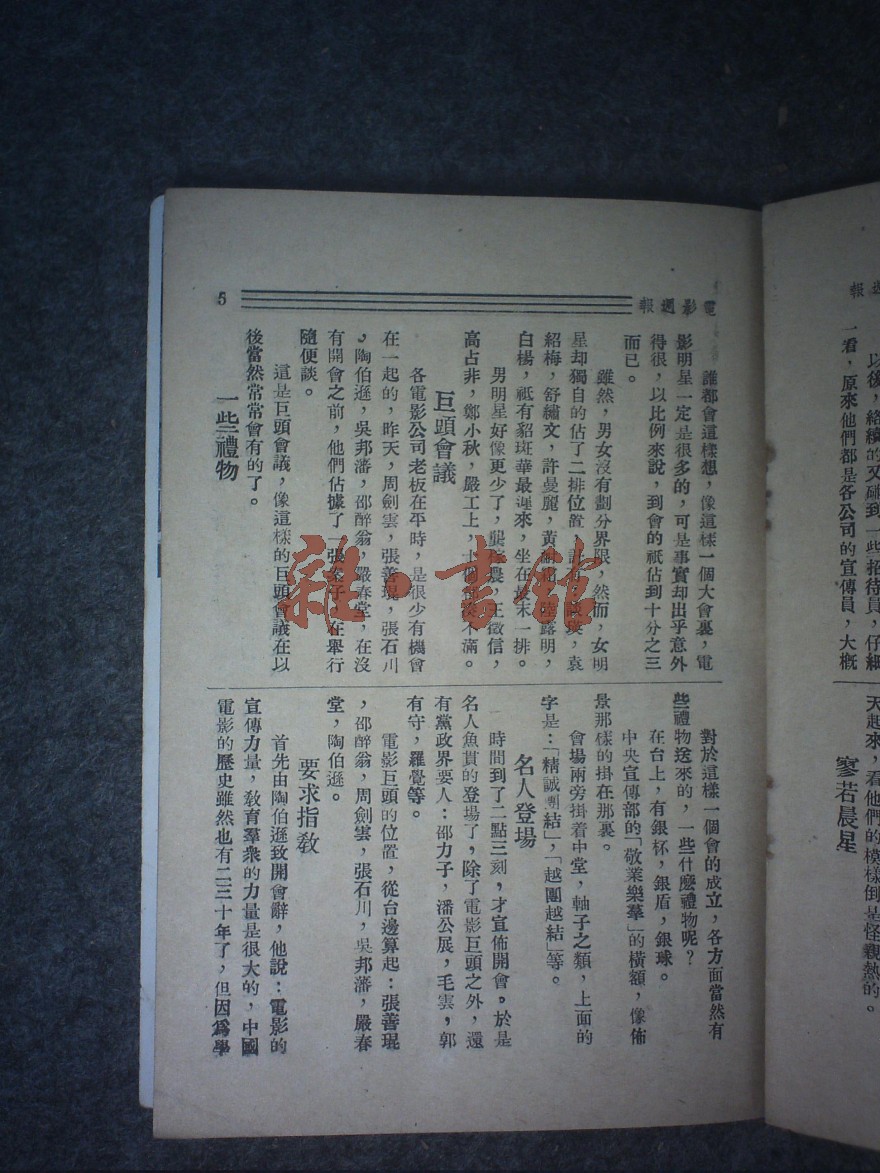 報週影電
5
誰都會這樣想，像這樣一個大會裏，電
影明星一定是很多的，可是事實却出乎意外
得很，以比例來說，到會的祇佔到十分之三
而已。
雖然，男女沒有劃分界限，然而，女明
星却獨自的佔了二排位置
袁
紹梅，舒繡文，許曼麗，黃
露明，
白楊，祇有貂斑華最遲來，坐在最末一排。
男明星好像更少了，龔稼農，王徵信，
高占非，鄭小秋，嚴工上，
不滿。
巨頭會議
各電影公司老板在平時，是很少有機會
在一起的，昨天，周劍雲，張善琨，張石川
，陶伯遜，吳邦藩，邵醉翁，嚴春堂，在沒
有開會之前，他們佔據了一張桌子，在舉行
隨便談。
這是巨頭會議，像這樣的巨頭會議在以
後當然常常會有的了。
一些禮物
對於這樣一個會的成立，各方面當然有
些禮物送來的，一些什麼禮物呢？
在台上，有銀杯，銀盾，銀球。
中央宣傳部的「敬業樂羣」的橫額，像佈
景那樣的掛在那裏。
會場兩旁掛着中堂，軸子之類，上面的
字是：「精誠團結」，「越團越結」等。
名人登場
時間到了二點三刻，才宣佈開會。於是
名人魚貫的登場了，除了電影巨頭之外，還
有黨政界要人：邵力子，潘公展，毛雲，郭
有守，羅覺等。
電影巨頭的位置，從台邊算起：張善琨
，邵醉翁，周劍雲，張石川，吳邦藩，嚴春
堂，陶伯遜。
要求指教
首先由陶伯遜致開會辭，他說：電影的
宣傳力量，教育羣衆的力量是很大的，中國
電影的歷史雖然也有二三十年了，但因爲學
報
以後，絡續的又碰到一些招待員，仔細
一看，原來他們都是各公司的宣傳員，大概
天起來，看他們的模樣倒是怪親熱的。
寥若晨星
雜·書館